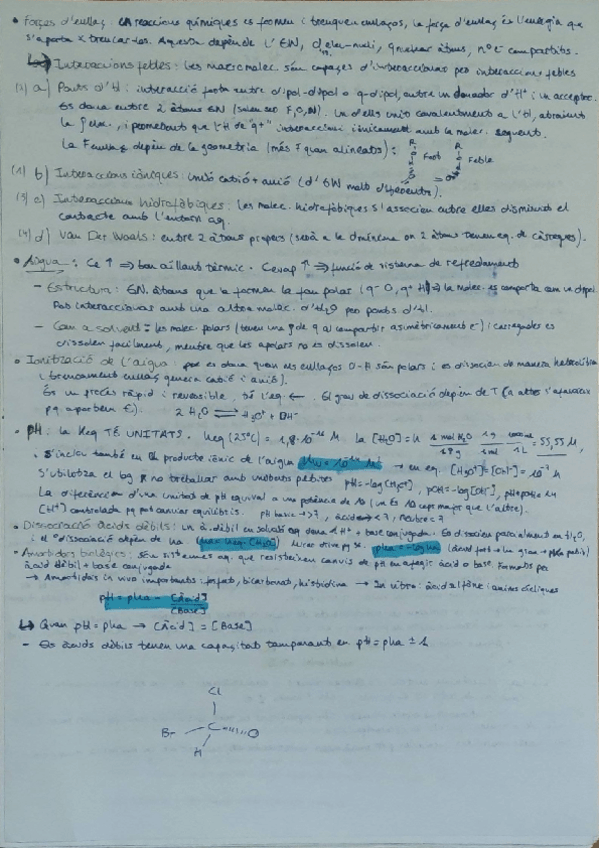 • Forçes d'enllaç. En reaccions químiques es formen i trenquen enllaços, la força d'enllaç és l'energia que
s'aporta x trencar-los. Aquesta depèn de l' EN, àtoms, nº e⁻ compartits.
↳ Interaccions febles: Les macromolec. són capaçes d'interaccionar per interaccions febles
(2) a) Ponts d'H: interacció forta entre dipol-dipol o q-dipol, entre un donador d'H⁺ i un acceptor.
Es dona entre 2 àtoms EN (solen ser F, O, N). Un d'ells unit covalentment a l'H, atraient
la elec., i permetent que l'H de q⁺ interaccioni iònicament amb la molec. següent.
La F enllaç depèn de la geometria (més F quan alineats): R Fort R Feble
(1) b) Interaccions iòniques: unió catió + anió (d' EN molt diferents).
(3) c) Interaccions hidrofòbiques: les molec. hidrofòbiques s'associen entre elles disminuint el
contacte amb l'entorn aq.
(4) d) Van Der Waals: entre 2 àtoms propers (serà a la d mínima on 2 àtoms tenen eq. de càrregues).
• Aigua: Ce ↑ ⇒ bon aïllant tèrmic. Cevap ↑ ⇒ funció de sistema de refredament
– Estructura: EN. àtoms que la formen la fan polar (q⁻ O, q⁺ H) ⇒ la molec. es comporta com un dipol.
Pot interaccionar amb una altra molec. d'H₂O per ponts d'H.
– Com a solvent: les molec. polars (tenen una de q al compartir asimètricament e⁻) i carregades es
dissolen fàcilment, mentre que les apolars no es dissolen.
• Ionització de l'aigua: es dona quan els enllaços O-H són polars i es dissocien de manera heterolítica
(trencament enllaç genera catió i anió).
És un procés ràpid i reversible, té l'eq ←. El grau de dissociació depèn de T (a altes T afavoreix
pq aportem E). 2 H₂O ⇌ H₃O⁺ + OH⁻
• pH: la Keq TÉ UNITATS. Keq (25ºC) = 1,8·10⁻¹⁶ M la [H₂O] = 1 mol H₂O / 18 g · 1 g / 1 mL · 1000 mL / 1 L = 55,55 M,
s'inclou també en el producte iònic de l'aigua Kw = 10⁻¹⁴ M² → en eq. [H₃O⁺] = [OH⁻] = 10⁻⁷ M
S'utilitza el log x no treballar amb números petits pH = -log[H₃O⁺], pOH = -log[OH⁻], pH + pOH = 14
La diferència d'una unitat de pH equival a una potència de 10 (un és 10 cops major que l'altre).
[H⁺] controlada pq pot canviar equilibris. pH bàsic → > 7, àcid → < 7, neutre = 7
• Dissociació àcids dèbils: un à. dèbil en solució aq dona H⁺ + base conjugada. Es dissocien parcialment en H₂O,
i el dissociació depèn de Ka (Ka = Keq·[H₂O]) pKa = -log Ka (àcid fort → Ka gran → pKa petit)
• Amortidors biològics: Són sistemes aq. que resisteixen canvis de pH en afegir àcid o base. Formats per
àcid dèbil + base conjugada
→ Amortidors in vivo importants: fosfat, bicarbonat, histidina → In vitro: àcid i amines cícliques
pH = pKa - [Àcid]
[Base]
↳ Quan pH = pKa → [Àcid] = [Base]
– Els àcids dèbils tenen una capacitat tamponant en pH = pKa ± 1
Cl
Br C
H